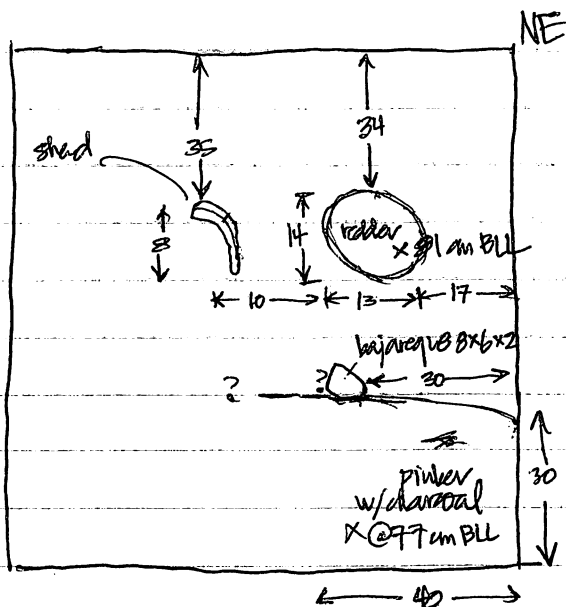 NE
35
34
sherd
8
14
redder
X @ 91 cm BLL
10
13
17
bajareque 8x6x2
?
?
30
30
pinker
w/charcoal
X @ 77 cm BLL
40